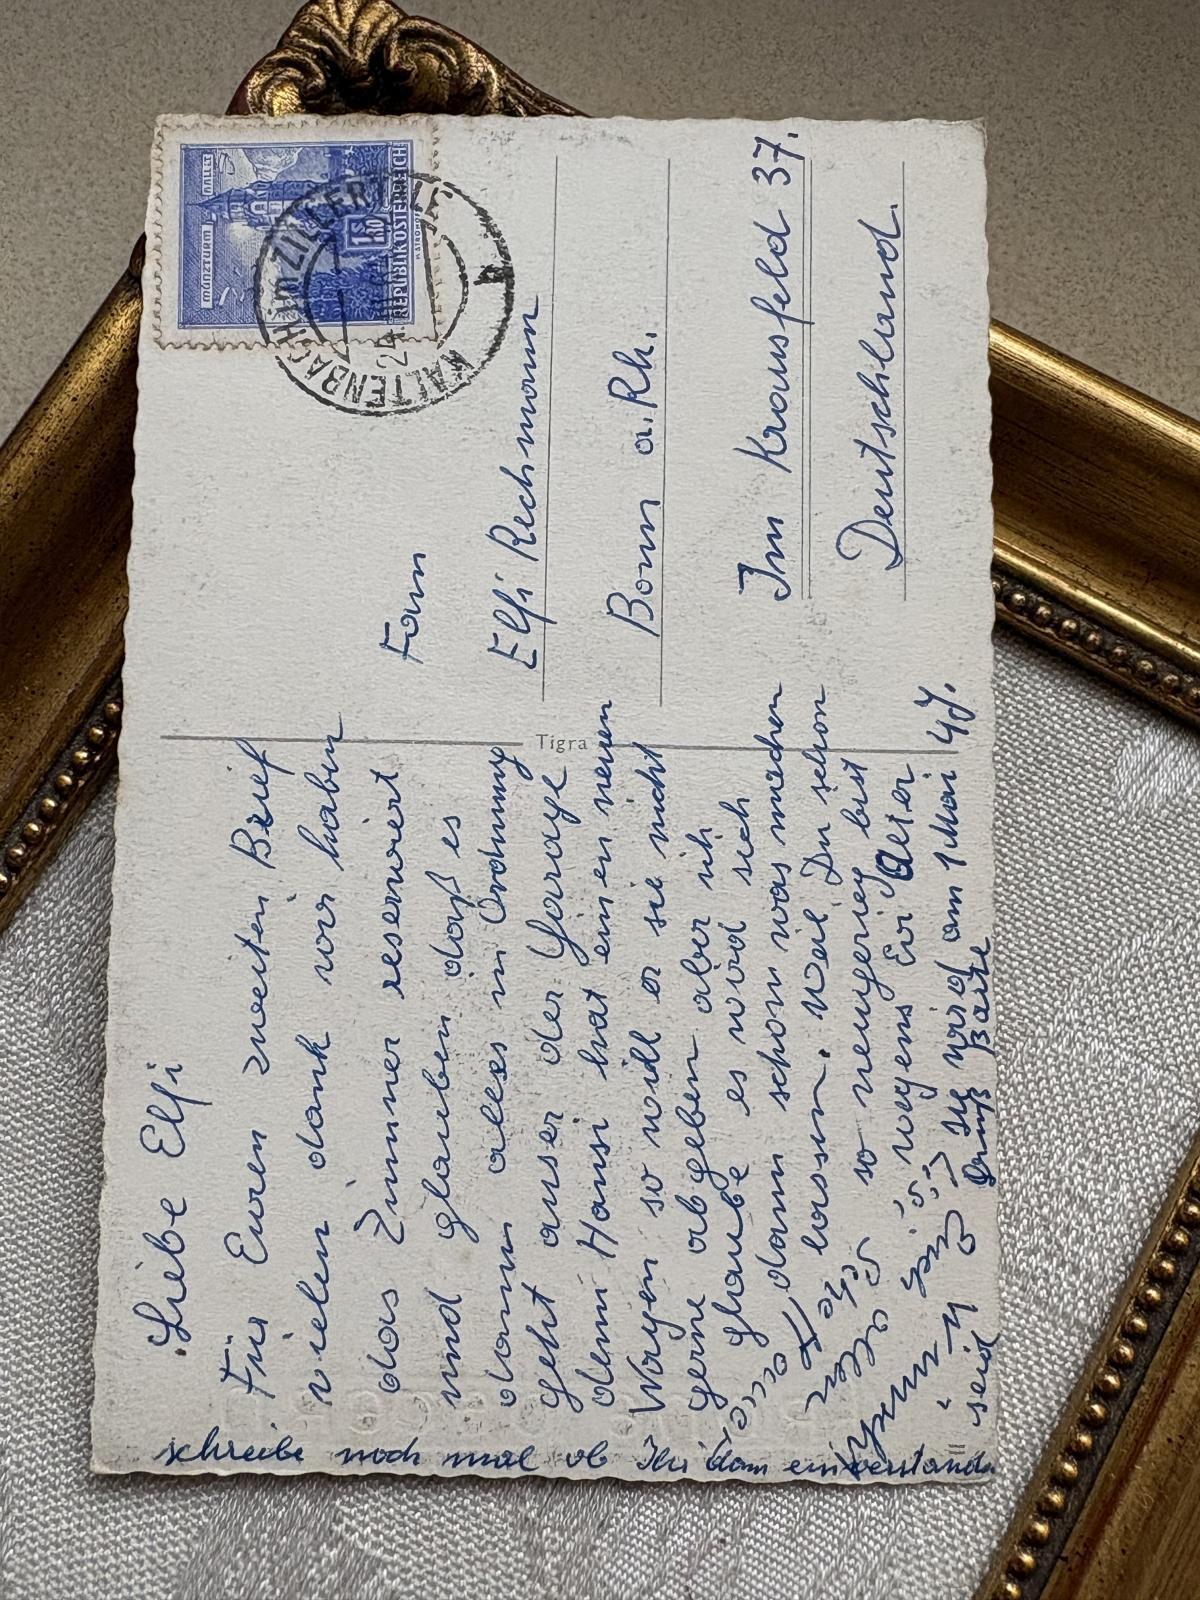 Liebe Elfi
Für Euren zweiten Brief
vielen dank wir haben
das Zimmer reserviert
und glauben daß es
dann alles in Ordnung
geht auser der Garage
denn Hansi hat einen neuen
Wagen so will er sie nicht
gerne abgeben aber ich
glaube es wird sich
dann schon was machen
lassen. Weil Du schon
so neugierig bist
wegens Evi Alter
Sie wird am 1 Mai 47.
Gruß Beate
schreibe noch mal ob Ihr dam einverstand.
seid
Tigra
Frau
Elfi Rechmann
Bonn a.Rh.
Im Krausfeld 37.
Deutschland.
MÜNZTURM HALL I.T.
1 S
REPUBLIK ÖSTERREICH
KALTENBACH im ZILLERTAL
24.